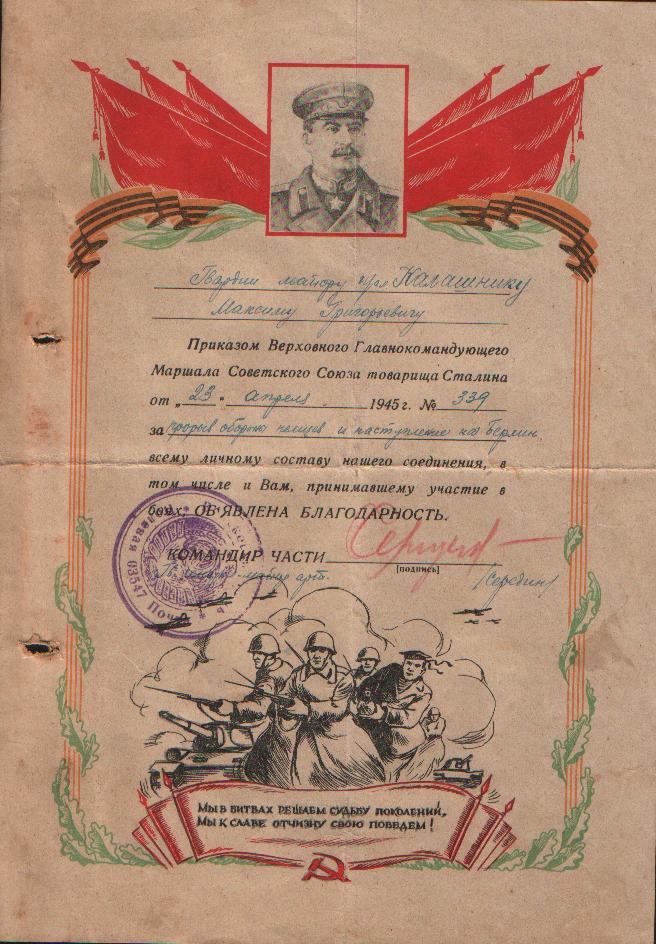 Гвардии майору Калашнику
Максиму Григорьевичу
Приказом Верховного Главнокомандующего
Маршала Советского Союза товарища Сталина
от „23“ апреля 1945 г. № 339
за прорыв обороны немцев и наступление на Берлин
всему личному составу нашего соединения, в
том числе и Вам, принимавшему участие в
боях, ОБ'ЯВЛЕНА БЛАГОДАРНОСТЬ.
КОМАНДИР ЧАСТИ
[подпись]
Гв. майор арт. /Середин/
Полевая Почта 03547
МЫ В БИТВАХ РЕШАЕМ СУДЬБУ ПОКОЛЕНИЙ,
МЫ К СЛАВЕ ОТЧИЗНУ СВОЮ ПОВЕДЕМ!